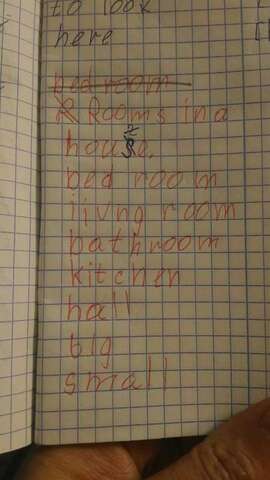 to look
here
bedroom
R Rooms in a
house.
bed room
livng room
bathroom
kitchen
hall
big
small